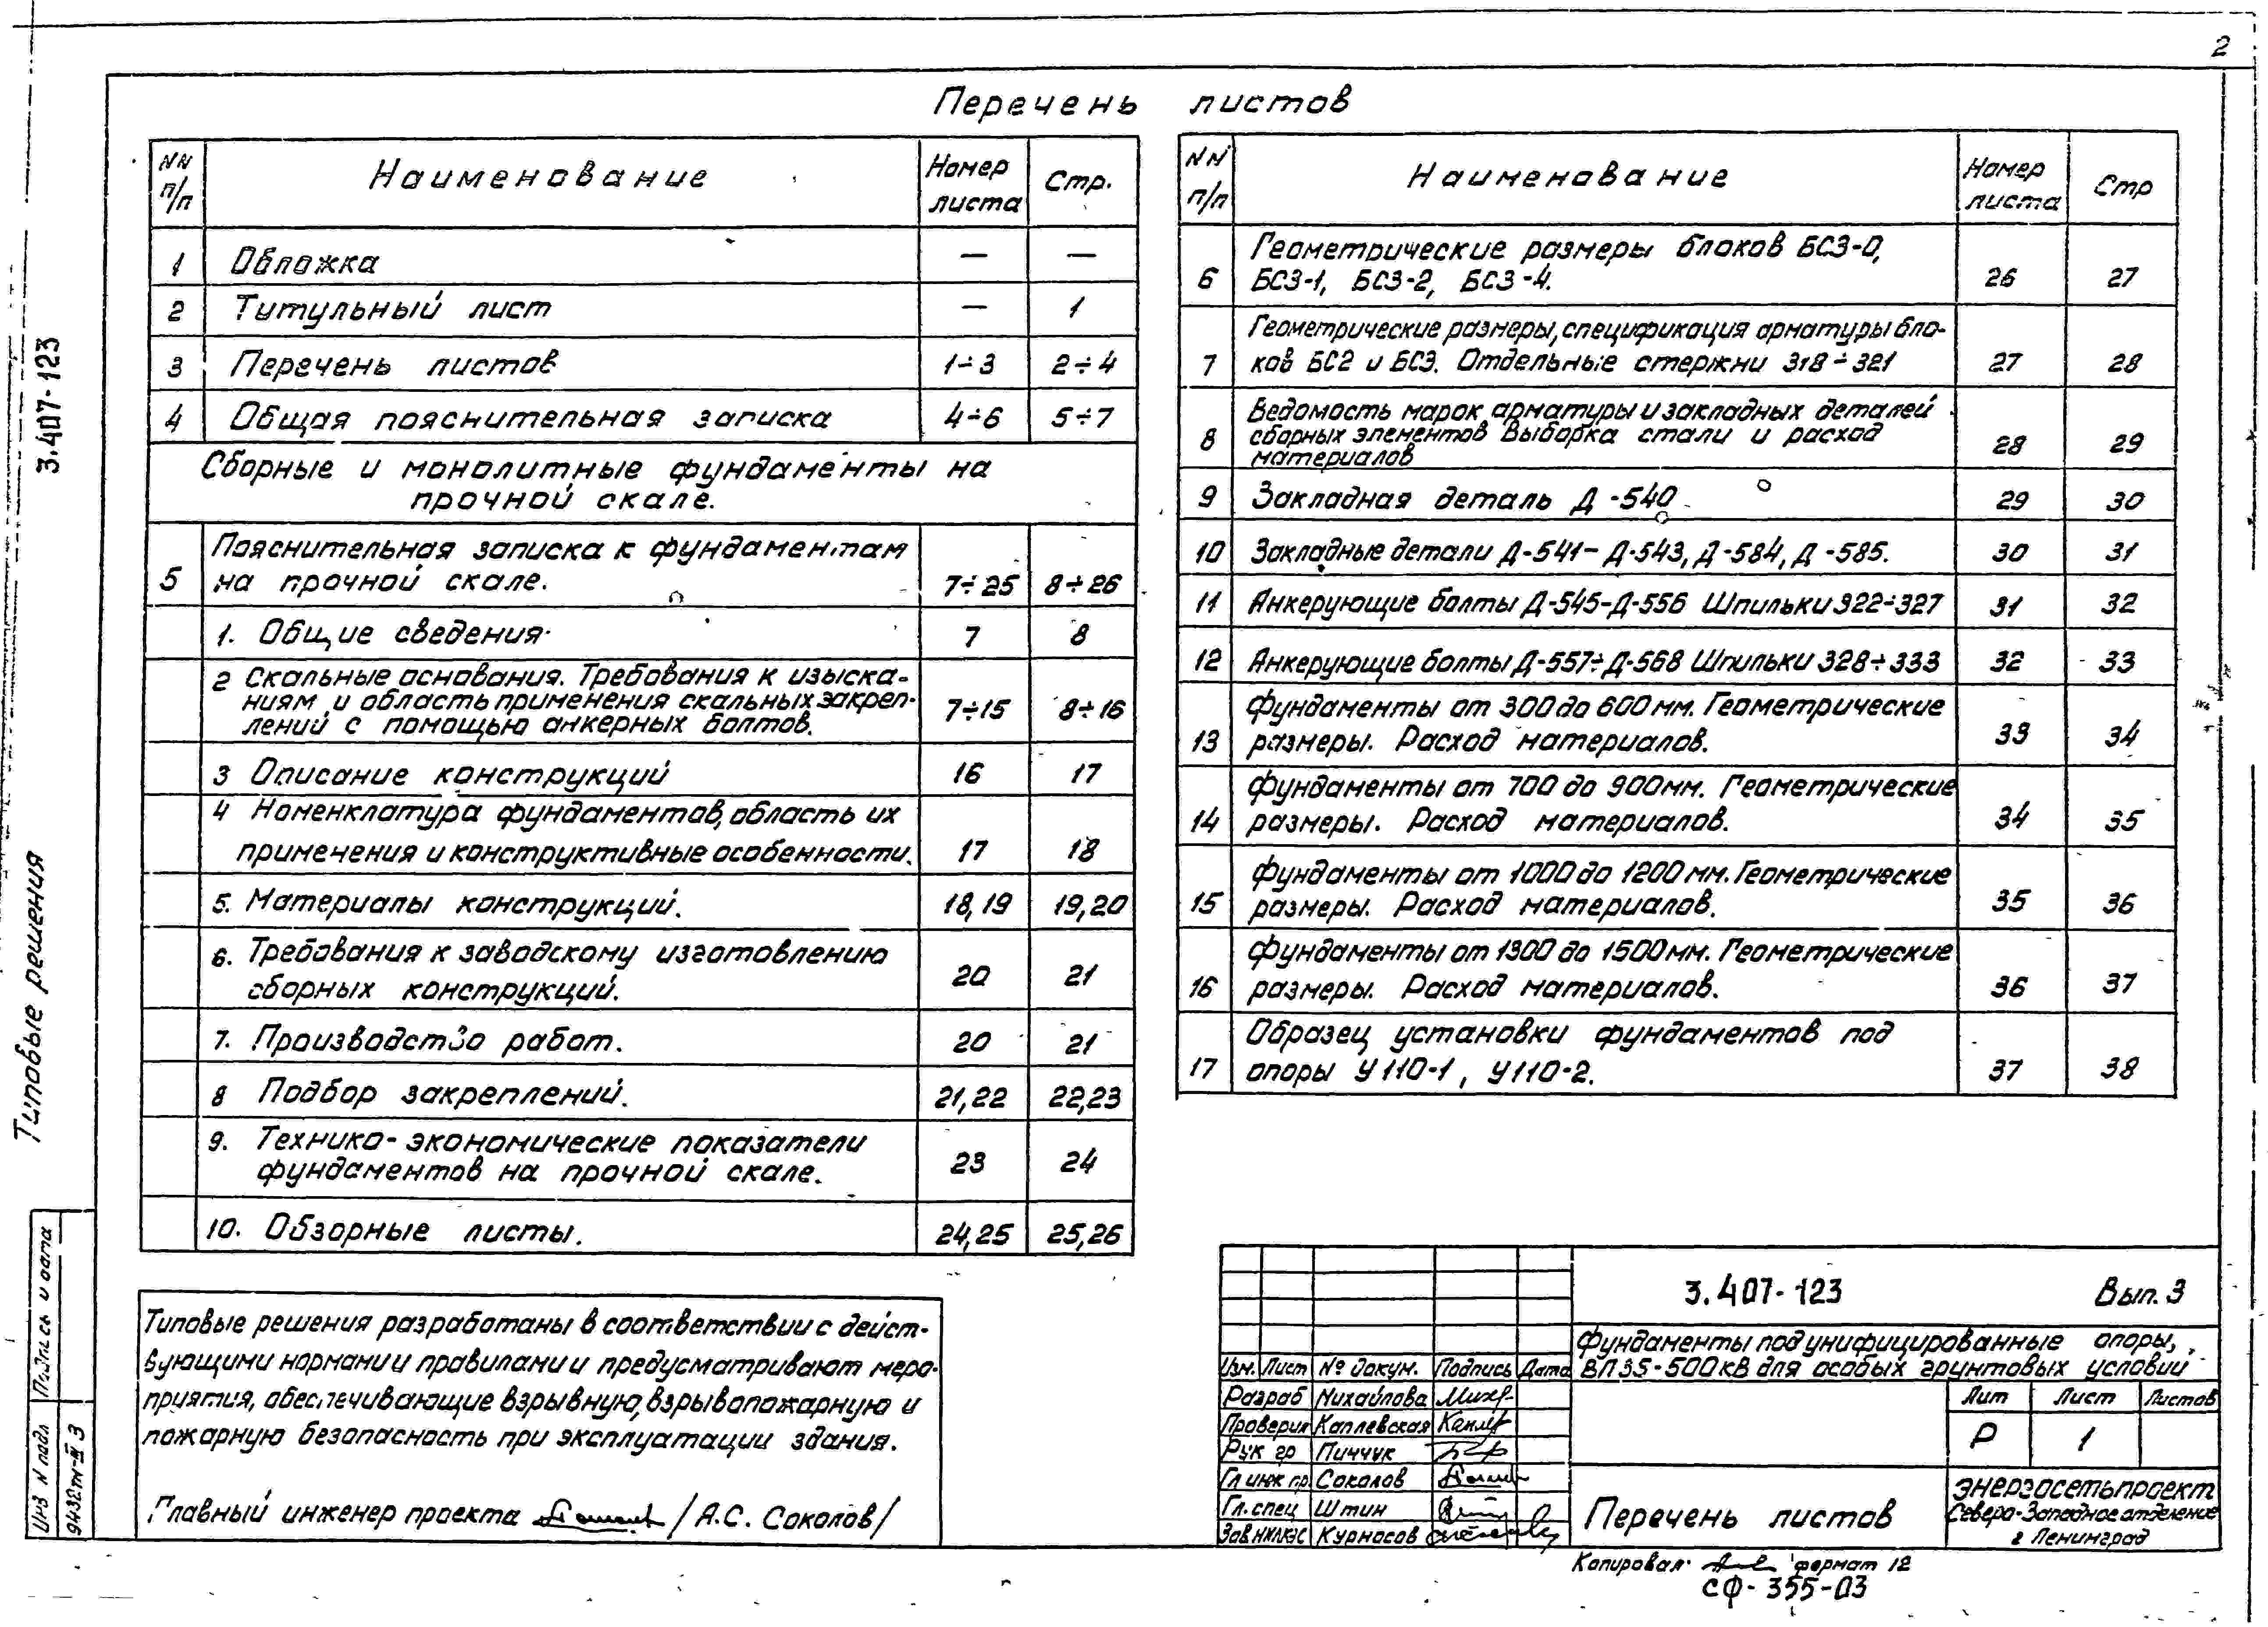 2
Перечень листов
NN п/п
Наименование
Номер листа
Стр.
1 Обложка — —
2 Титульный лист — 1
3 Перечень листов 1÷3 2÷4
4 Общая пояснительная записка 4÷6 5÷7
Сборные и монолитные фундаменты на
прочной скале.
Пояснительная записка к фундаментам
5 на прочной скале. 7÷25 8÷26
1. Общие сведения. 7 8
2 Скальные основания. Требования к изыска-
ниям и область применения скальных закреп-
лений с помощью анкерных болтов. 7÷15 8÷16
3 Описание конструкций 16 17
4 Номенклатура фундаментов, область их
применения и конструктивные особенности. 17 18
5. Материалы конструкций. 18,19 19,20
6. Требования к заводскому изготовлению
сборных конструкций. 20 21
7. Производство работ. 20 21
8 Подбор закреплений. 21,22 22,23
9. Технико-экономические показатели
фундаментов на прочной скале. 23 24
10. Обзорные листы. 24,25 25,26
NN п/п
Наименование
Номер листа
Стр
Геометрические размеры блоков БС3-0,
6 БС3-1, БС3-2, БС3-4. 26 27
Геометрические размеры, спецификация арматуры бло-
7 ков БС2 и БС3. Отдельные стержни 318÷321 27 28
Ведомость марок арматуры и закладных деталей
8 сборных элементов Выборка стали и расход
материалов 28 29
9 Закладная деталь Д-540 29 30
10 Закладные детали Д-541-Д-543, Д-584, Д-585. 30 31
11 Анкерующие болты Д-545-Д-556 Шпильки 322÷327 31 32
12 Анкерующие болты Д-557÷Д-568 Шпильки 328÷333 32 33
Фундаменты от 300 до 600 мм. Геометрические
13 размеры. Расход материалов. 33 34
Фундаменты от 700 до 900 мм. Геометрические
14 размеры. Расход материалов. 34 35
Фундаменты от 1000 до 1200 мм. Геометрические
15 размеры. Расход материалов. 35 36
Фундаменты от 1300 до 1500 мм. Геометрические
16 размеры. Расход материалов. 36 37
Образец установки фундаментов под
17 опоры У110-1, У110-2. 37 38
Типовые решения разработаны в соответствии с дейст-
вующими нормами и правилами и предусматривают меро-
приятия, обеспечивающие взрывную, взрывопожарную и
пожарную безопасность при эксплуатации здания.
Главный инженер проекта /А.С. Соколов/
3.407-123 Вып. 3
Фундаменты под унифицированные опоры,
ВЛ 35-500кВ для особых грунтовых условий
Изм. Лист № докум. Подпись Дата
Разраб Михайлова
Проверил Каплевская
Рук гр Пинчук
Гл инж пр Соколов
Гл. спец Штин
Зав НИЛКЭС Курносов
Лит Лист Листов
Р 1
Перечень листов
Энергосетьпроект
Северо-Западное отделение
г Ленинград
Копировал формат 12
СФ-355-03
Типовые решения 3.407-123
Подпись и дата
Инв N подл
9432тм-III 3